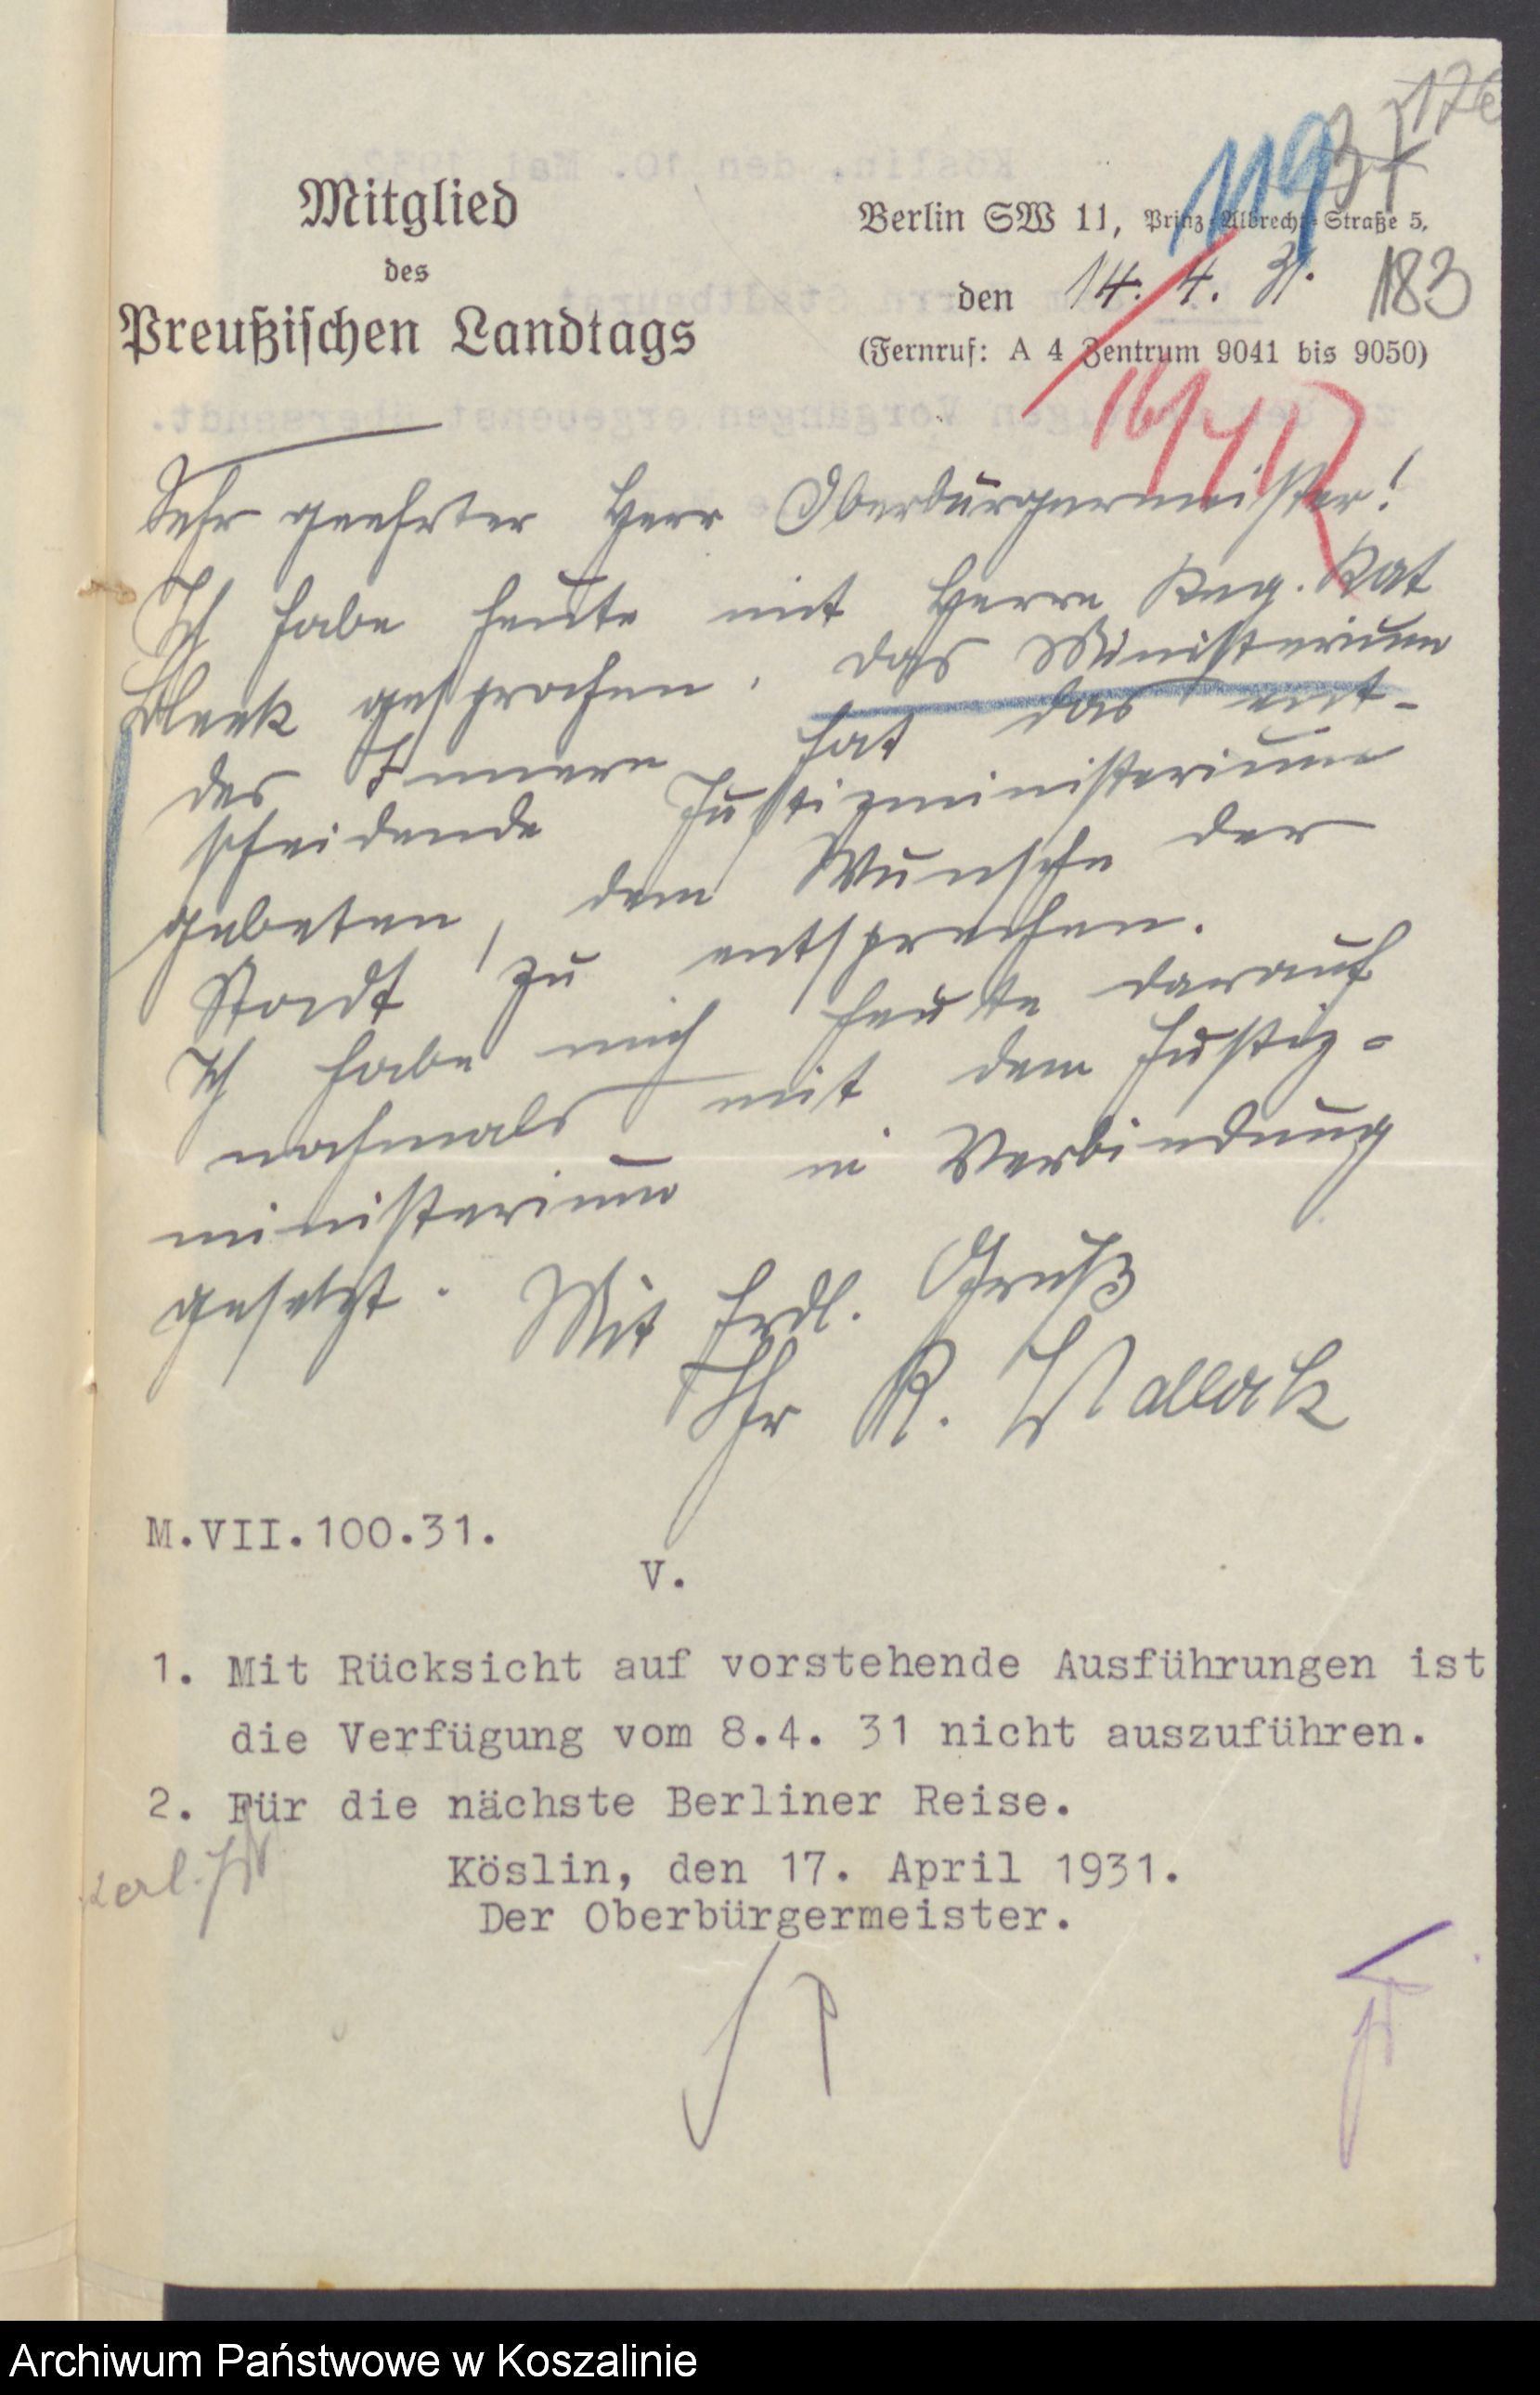 176
37
119
Mitglied
des
Preußischen Landtags
Berlin SW 11, Prinz-Albrecht-Straße 5.
den 14. 4. 31.
183
(Fernruf: A 4 Zentrum 9041 bis 9050)
16/4
Sehr geehrter Herr Oberbürgermeister!
Ich habe heute mit Herrn Reg. Rat
Bleek gesprochen. das Ministerium
des Innern hat das ent-
scheidende Justizministerium
gebeten, dem Wunsche der
Stadt zu entsprechen.
Ich habe mich heute darauf
nochmals mit dem Justiz-
ministerium in Verbindung
gesetzt. Mit frdl. Gruß
Ihr K.
M.VII.100.31.
V.
1. Mit Rücksicht auf vorstehende Ausführungen ist
die Verfügung vom 8.4. 31 nicht auszuführen.
2. Für die nächste Berliner Reise.
Köslin, den 17. April 1931.
Der Oberbürgermeister.
Archiwum Państwowe w Koszalinie